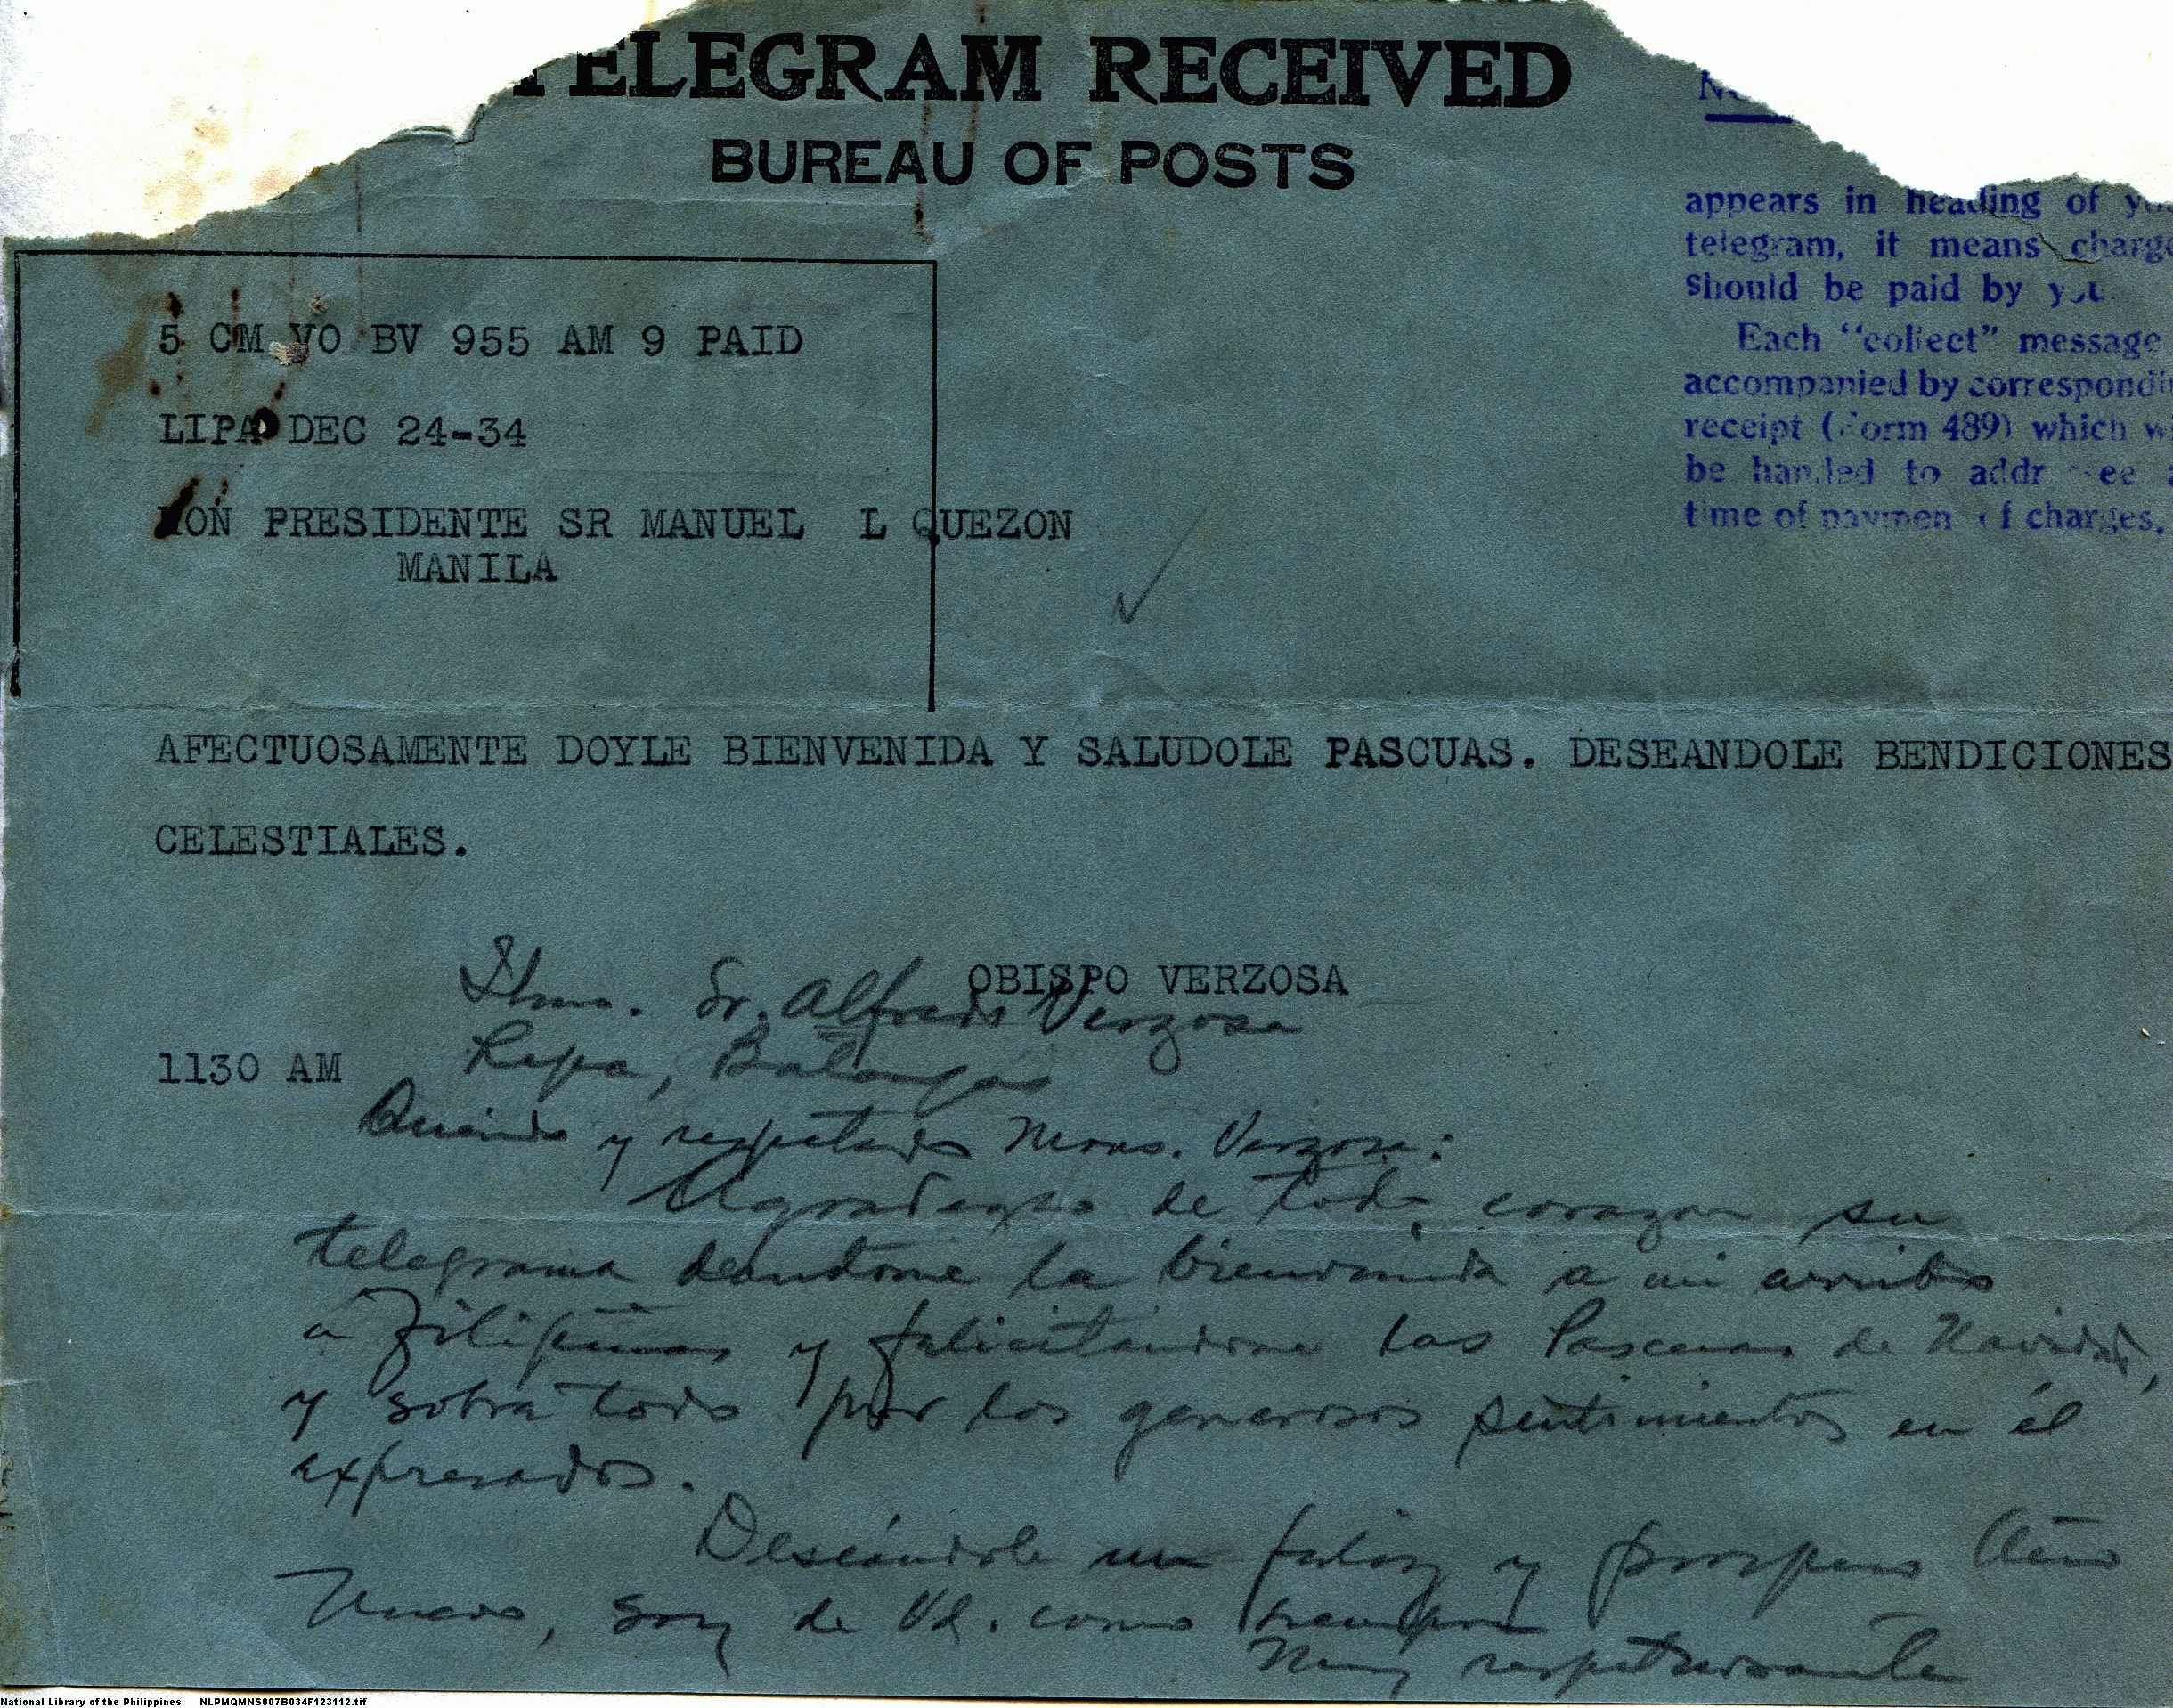 TELEGRAM RECEIVED
BUREAU OF POSTS
appears in heading of
telegram, it means
should be paid by you.
Each "collect" message
accompanied by
receipt (Form 489) which
be handed to addressee
time of payment of charges.
5 CM VO BV 955 AM 9 PAID
LIPA DEC 24-34
HON PRESIDENTE SR MANUEL L QUEZON
MANILA
AFECTUOSAMENTE DOYLE BIENVENIDA Y SALUDOLE PASCUAS. DESEANDOLE BENDICIONES
CELESTIALES.
OBISPO VERZOSA
Ilmo. Sr. Alfredo Verzosa
1130 AM
Lipa, Batangas
Querido y respetado Mons. Verzosa:
Agradezco de todo corazon su
telegrama deandome la bienvenida a mi arribo
a Filipinas y felicitandome las Pascuas de Navidad,
y sobre todo por los generosos sentimientos en él
expresados.
Deseándole un feliz y prospero Año
Nuevo, soy de Vd. como siempre
Muy respetuosamente
National Library of the Philippines NLPMQMNS007B034F123112.tif